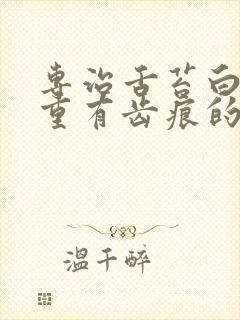 专治舌苔白
重有齿痕的
温千醉